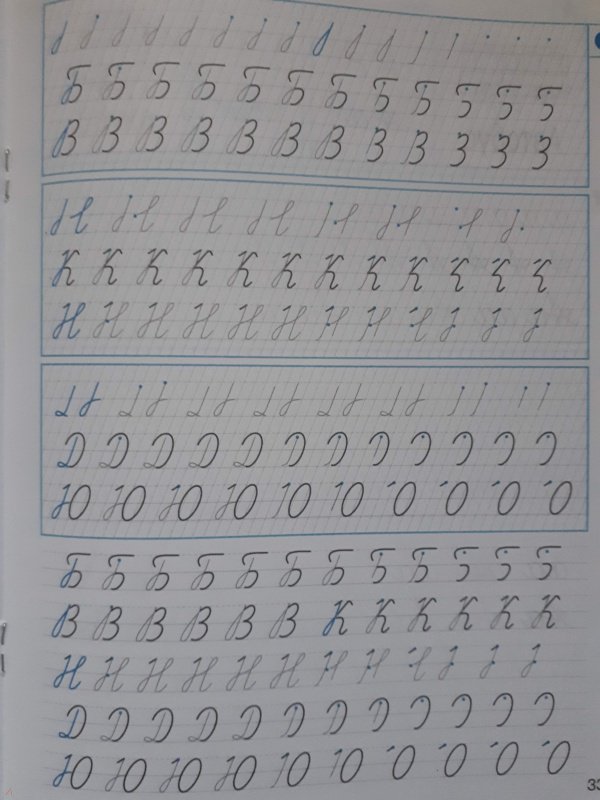 Б Б Б Б Б Б Б Б Б
В В В В В В В В В
К К К К К К К К К
Н Н Н Н Н Н
Д Д Д Д Д Д Д Д
Ю Ю Ю Ю Ю Ю
Б Б Б Б Б Б Б Б Б
В В В В В В К К К К К К
Н Н Н Н Н Н
Д Д Д Д Д Д Д Д
Ю Ю Ю Ю Ю Ю
33